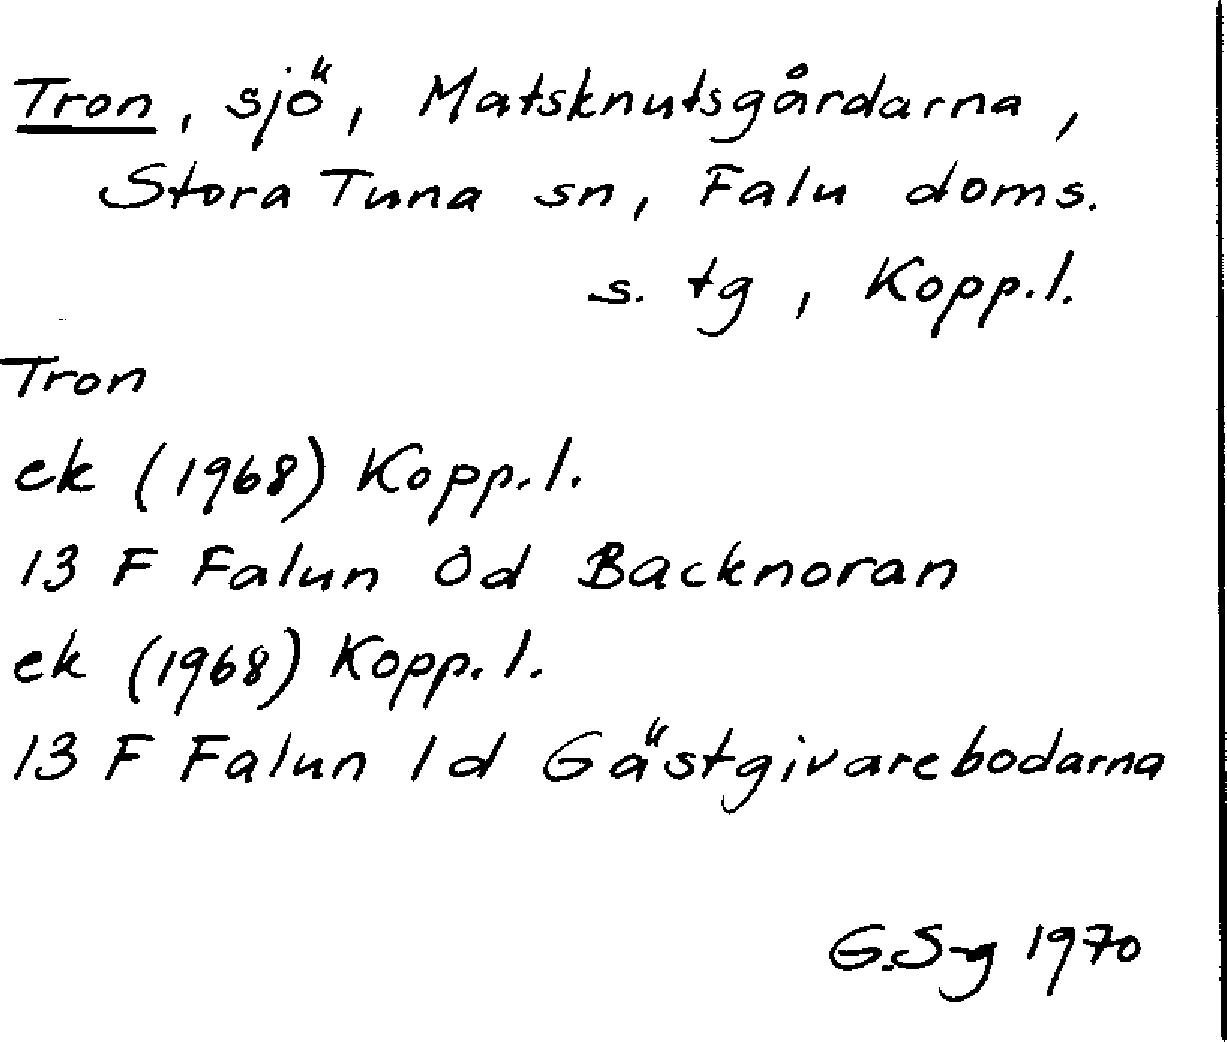 Tron, sjö, Matsknutsgårdarna,
Stora Tuna sn, Falu doms.
s. tg, Kopp.l.
Tron
ek (1968) Kopp.l.
13 F Falun 0d Backnoran
ek (1968) Kopp.l.
13 F Falun 1d Gästgivarebodarna
G.S-g 1970